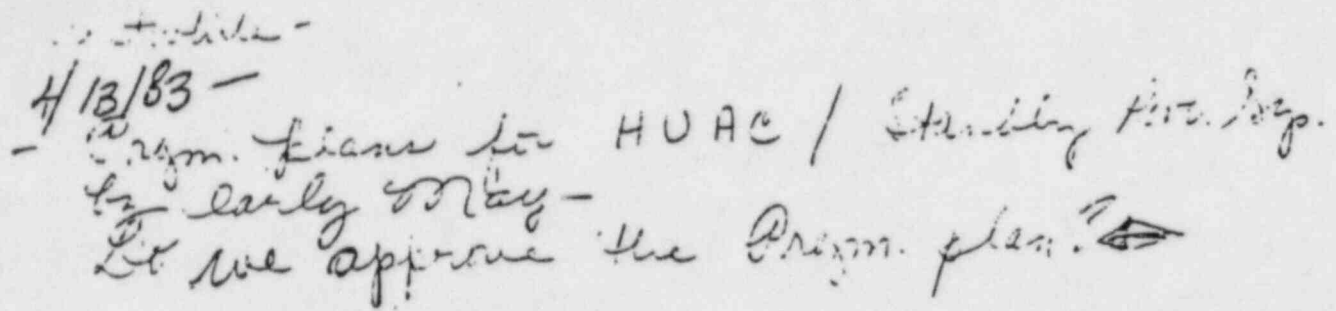 4/13/83 -
- Prgm. plans for HVAC / Standby Pwr. Sup.
by early May -
Do we approve the Prgm. plan?